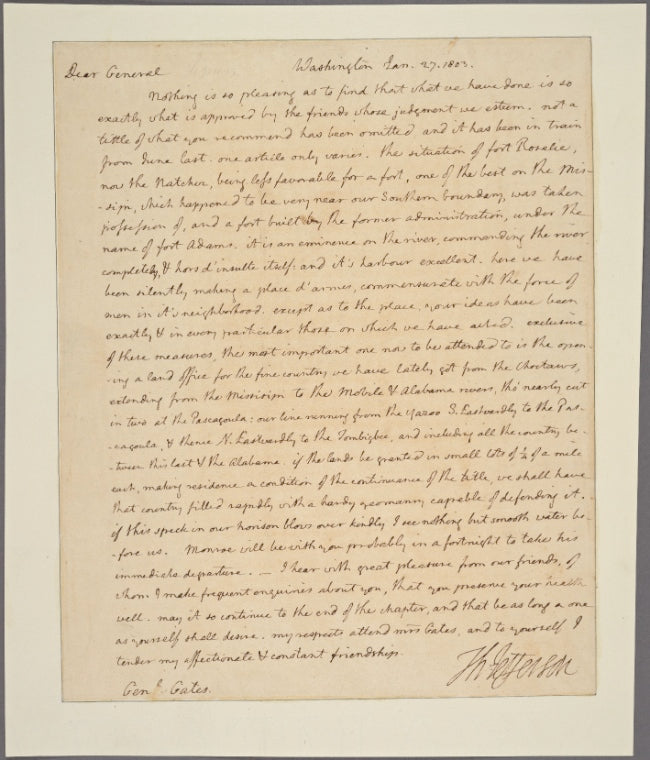 Dear General Washington Jan. 27. 1803.
Nothing is so pleasing as to find that what we have done is so
exactly what is approved by the friends whose judgment we esteem. not a
tittle of what you recommend has been omitted and it has been in train
from June last. one article only varies. the situation of fort Rosalie,
now the Natchez, being less favorable for a fort, one of the best on the Mis-
-sipi, which happened to be very near our Southern boundary, was taken
possession of, and a fort built by the former administration, under the
name of fort Adams. it is an eminence on the river, commanding the river
completely, & hors d'insulte itself: and it's harbour excellent. here we have
been silently making a place d'armes, commensurate with the force of
men in it's neighborhood. except as to the place, your ideas have been
exactly & in every particular those on which we have acted. exclusive
of these measures, the most important one now to be attended to is the open-
-ing a land office for the fine country we have lately got from the Choctaws,
extending from the Missisipi to the Mobile & Alabama rivers, tho' nearly cut
in two at the Pascagoula: our line running from the Yazoo S. Eastwardly to the Pas-
-cagoula, & thence N. Eastwardly to the Tombigbee, and including all the country be-
-tween this last & the Alabama. if the lands be granted in small lots of ¼ of a mile
each, making residence a condition of the continuance of the title, we shall have
that country filled rapidly with a hardy yeomanry capable of defending it.
if this speck in our horison blows over kindly I see nothing but smooth water be-
-fore us. Monroe will be with you probably in a fortnight to take his
immediate departure. — I hear with great pleasure from our friends, of
whom I make frequent enquiries about you, that you preserve your health
well. may it so continue to the end of the chapter, and that be as long a one
as yourself shall desire. my respects attend mrs Gates, and to yourself I
tender my affectionate & constant friendship.
Th: Jefferson
Genl. Gates.